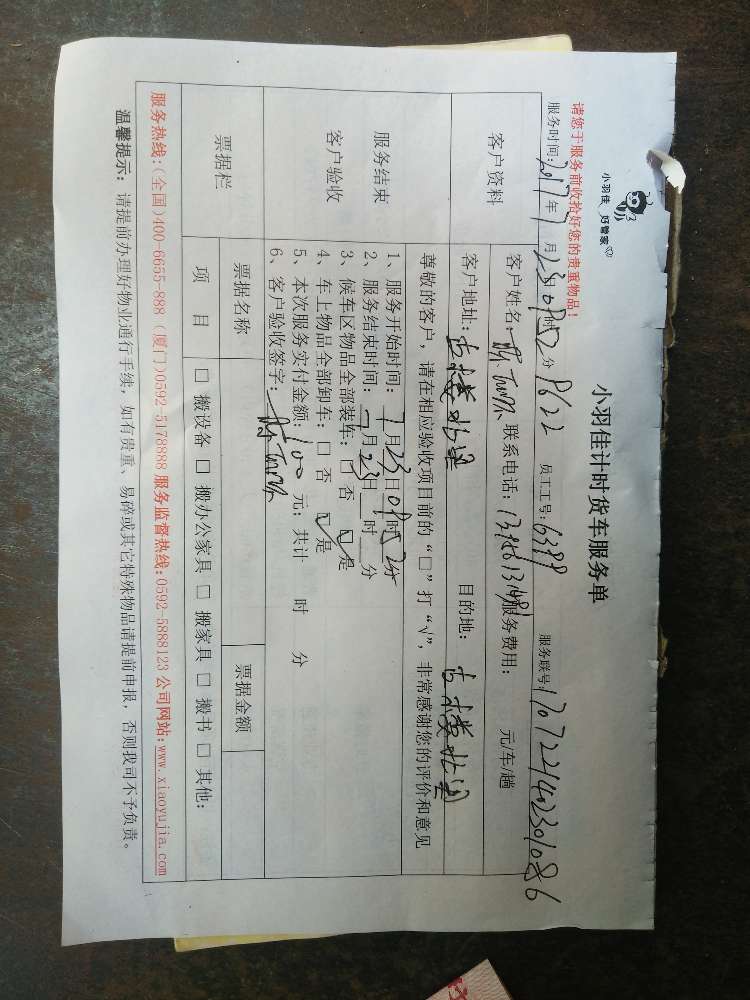 小羽佳 好管家
小羽佳计时货车服务单
请您于服务前收拾好您的贵重物品!
服务时间: 2017年7月23日09时52分 9622 员工工号: 6399 服务联号: 1707221402301086
客户资料
客户姓名: 联系电话: 服务费用: 元/车/趟
客户地址: 古楼北里 目的地: 古楼北里
服务结束
客户验收
尊敬的客户，请在相应验收项目前的“□”打“√”，非常感谢您的评价和意见
1、服务开始时间: 7月23日09时52分
2、服务结束时间: 7月23日 时 分
3、候车区物品全部装车: □ 否 ☑ 是
4、车上物品全部卸车: □ 否 ☑ 是
5、本次服务实付金额: 100 元; 共计 时 分
6、客户验收签字:
票据栏 票据名称 票据金额
项 目 □ 搬设备 □ 搬办公家具 □ 搬家具 □ 搬书 □ 其他:
服务热线:(全国)400-6655-888 (厦门)0592-5178888 服务监督热线:0592-5888123 公司网站:www.xiaoyujia.com
温馨提示: 请提前办理好物业通行手续，如有贵重、易碎或其它特殊物品请提前申报，否则我司不予负责。